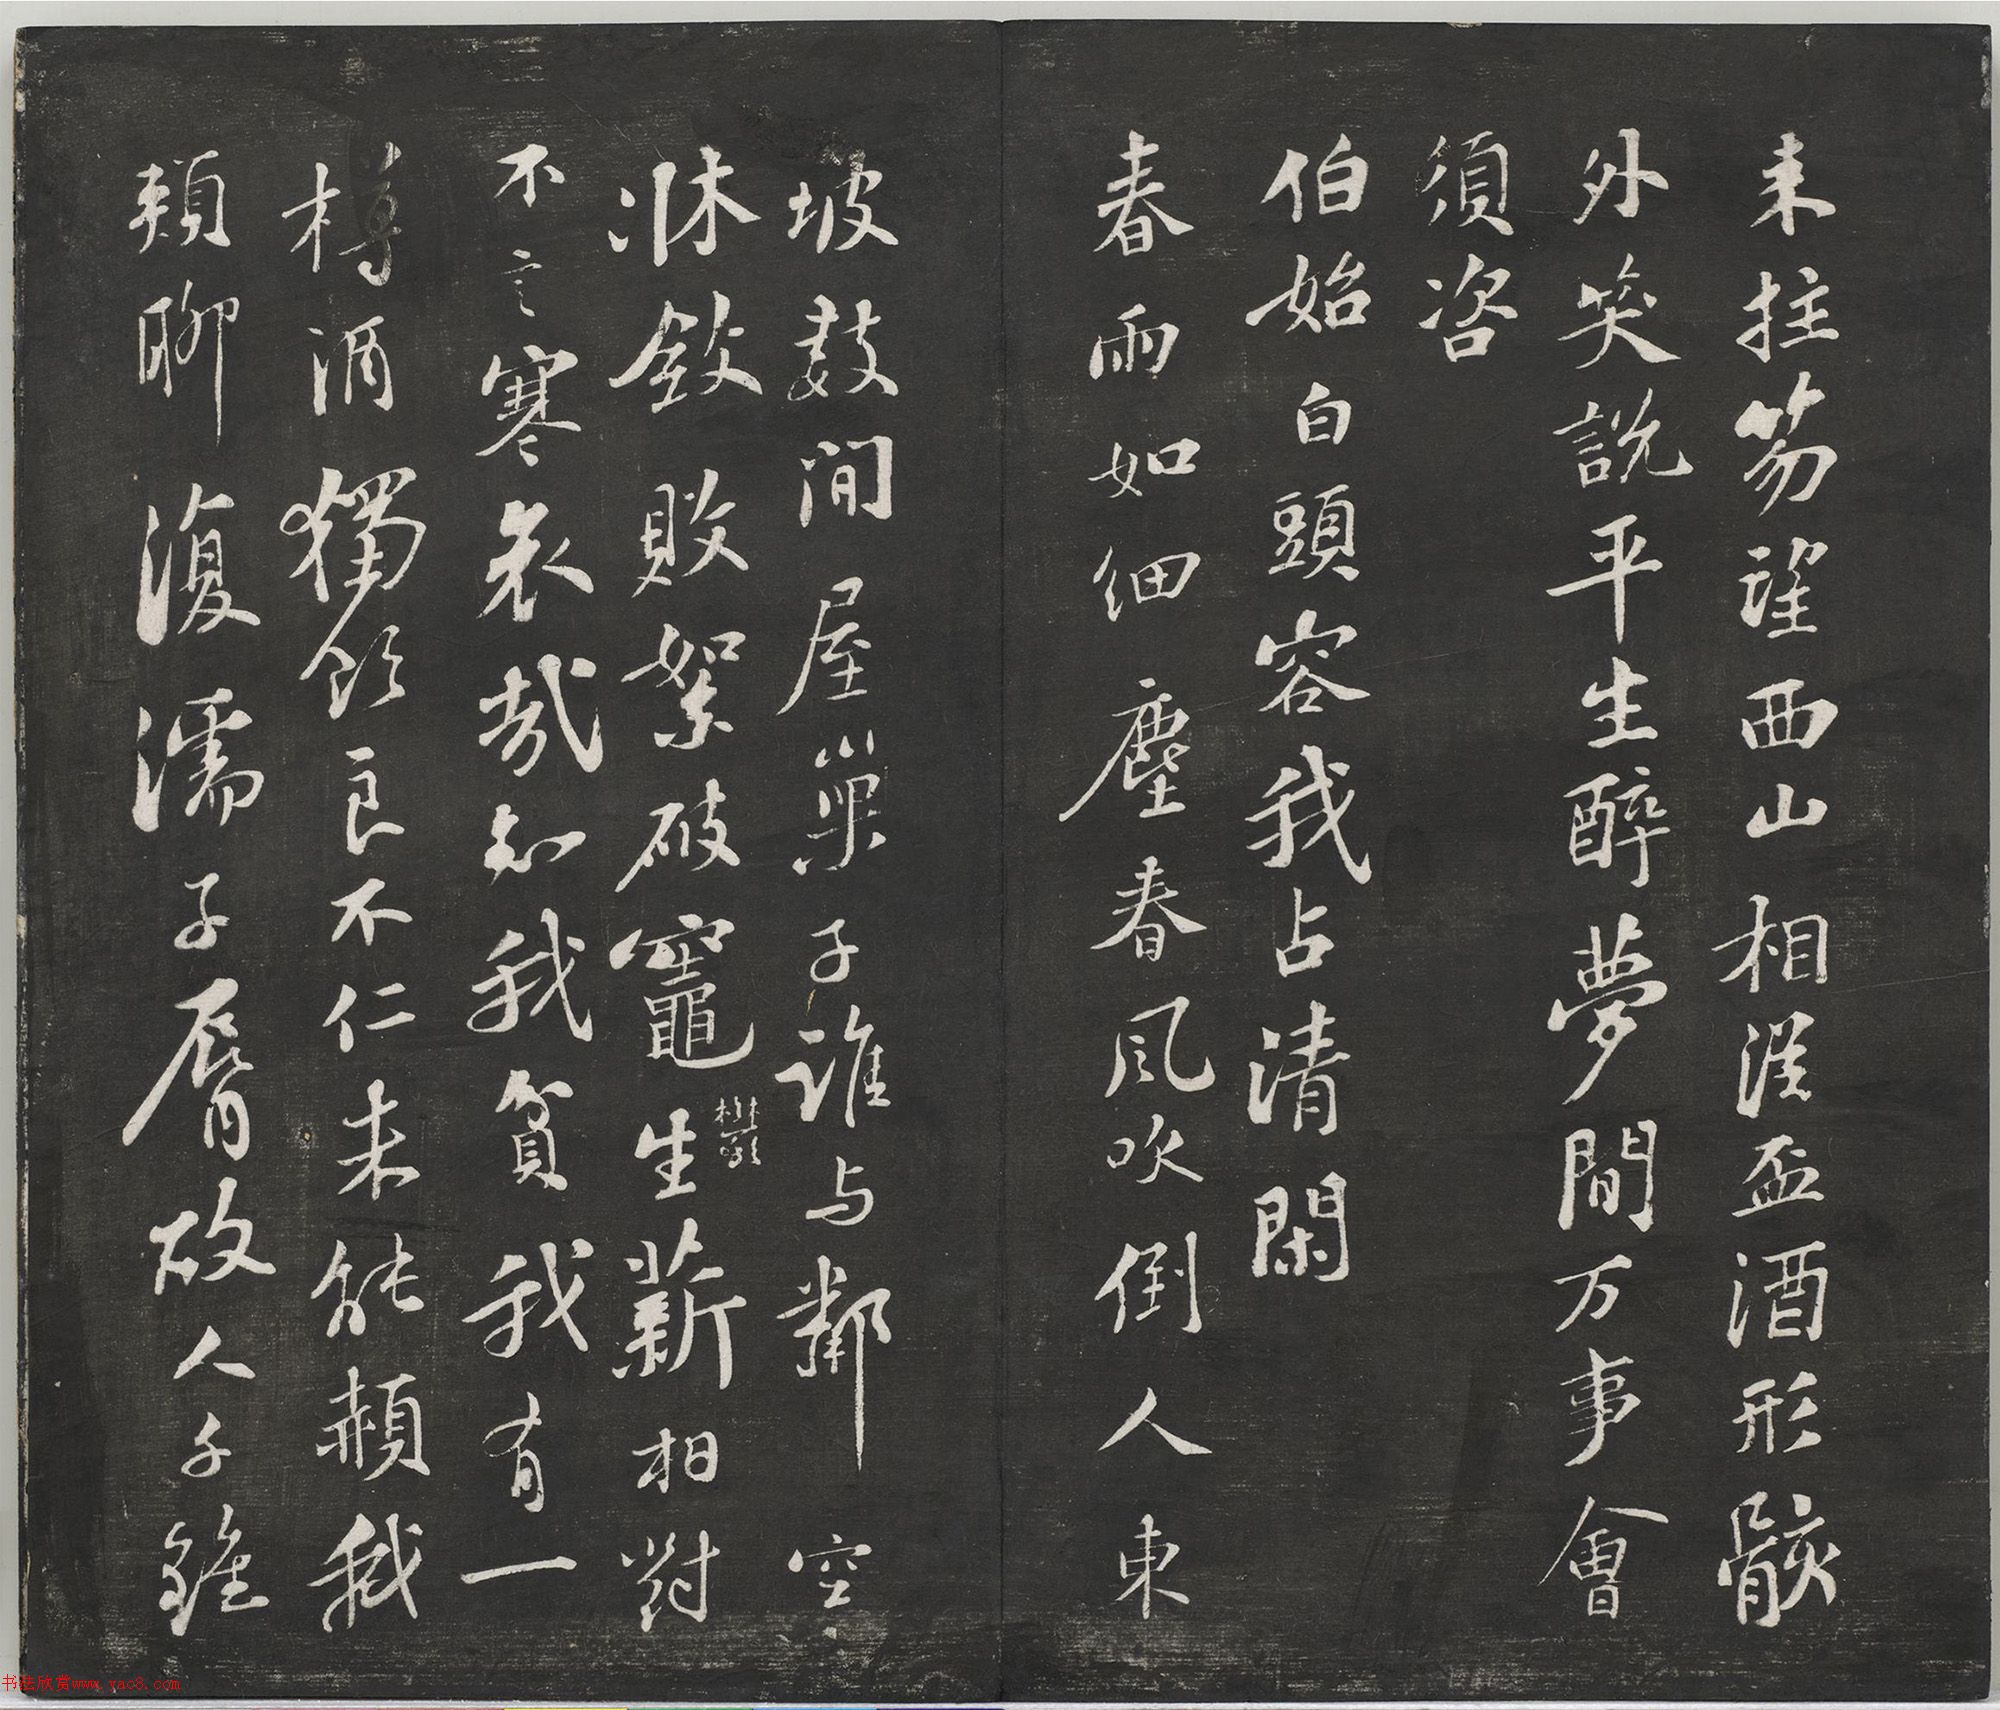 来拄笏望西山相從盃酒形骸
外笑說平生醉夢間万事會
須咨
伯始白頭容我占清閑
春雨如細塵春風吹倒人東
坡數間屋巢子誰与鄰空
牀斂敗絮破竈欝生薪相對
不言寒哀哉知我貧我有一
樽酒獨飲良不仁未能赬我
頰聊復濡子脣故人千鍾
书法欣赏www.yac8.com